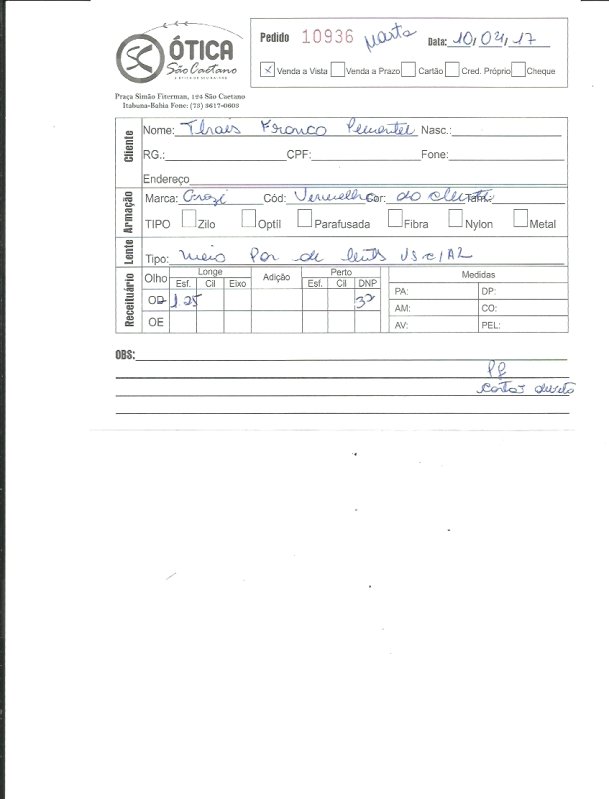 ÓTICA
São Caetano
Praça Simão Fiterman, 124 São Caetano
Itabuna-Bahia Fone: (73) 3617-0603
Pedido 10936 Marta Data: 10,04,17
x Venda a Vista Venda a Prazo Cartão Cred. Próprio Cheque
Cliente
Nome: Thais Franco Pimentel Nasc.:
RG.: CPF: Fone:
Endereço
Armação
Marca: Grazi Cód: Vermelho Cor: do cliente Tam.:
TIPO Zilo Optíl Parafusada Fibra Nylon Metal
Lente
Tipo: meio Par de lents VS c/AR
Receituário
Olho Longe Adição Perto Medidas
Esf. Cil Eixo Esf. Cil DNP
OD 1.25 32
OE
PA: DP:
AM: CO:
AV: PEL:
OBS:
Pg
direto